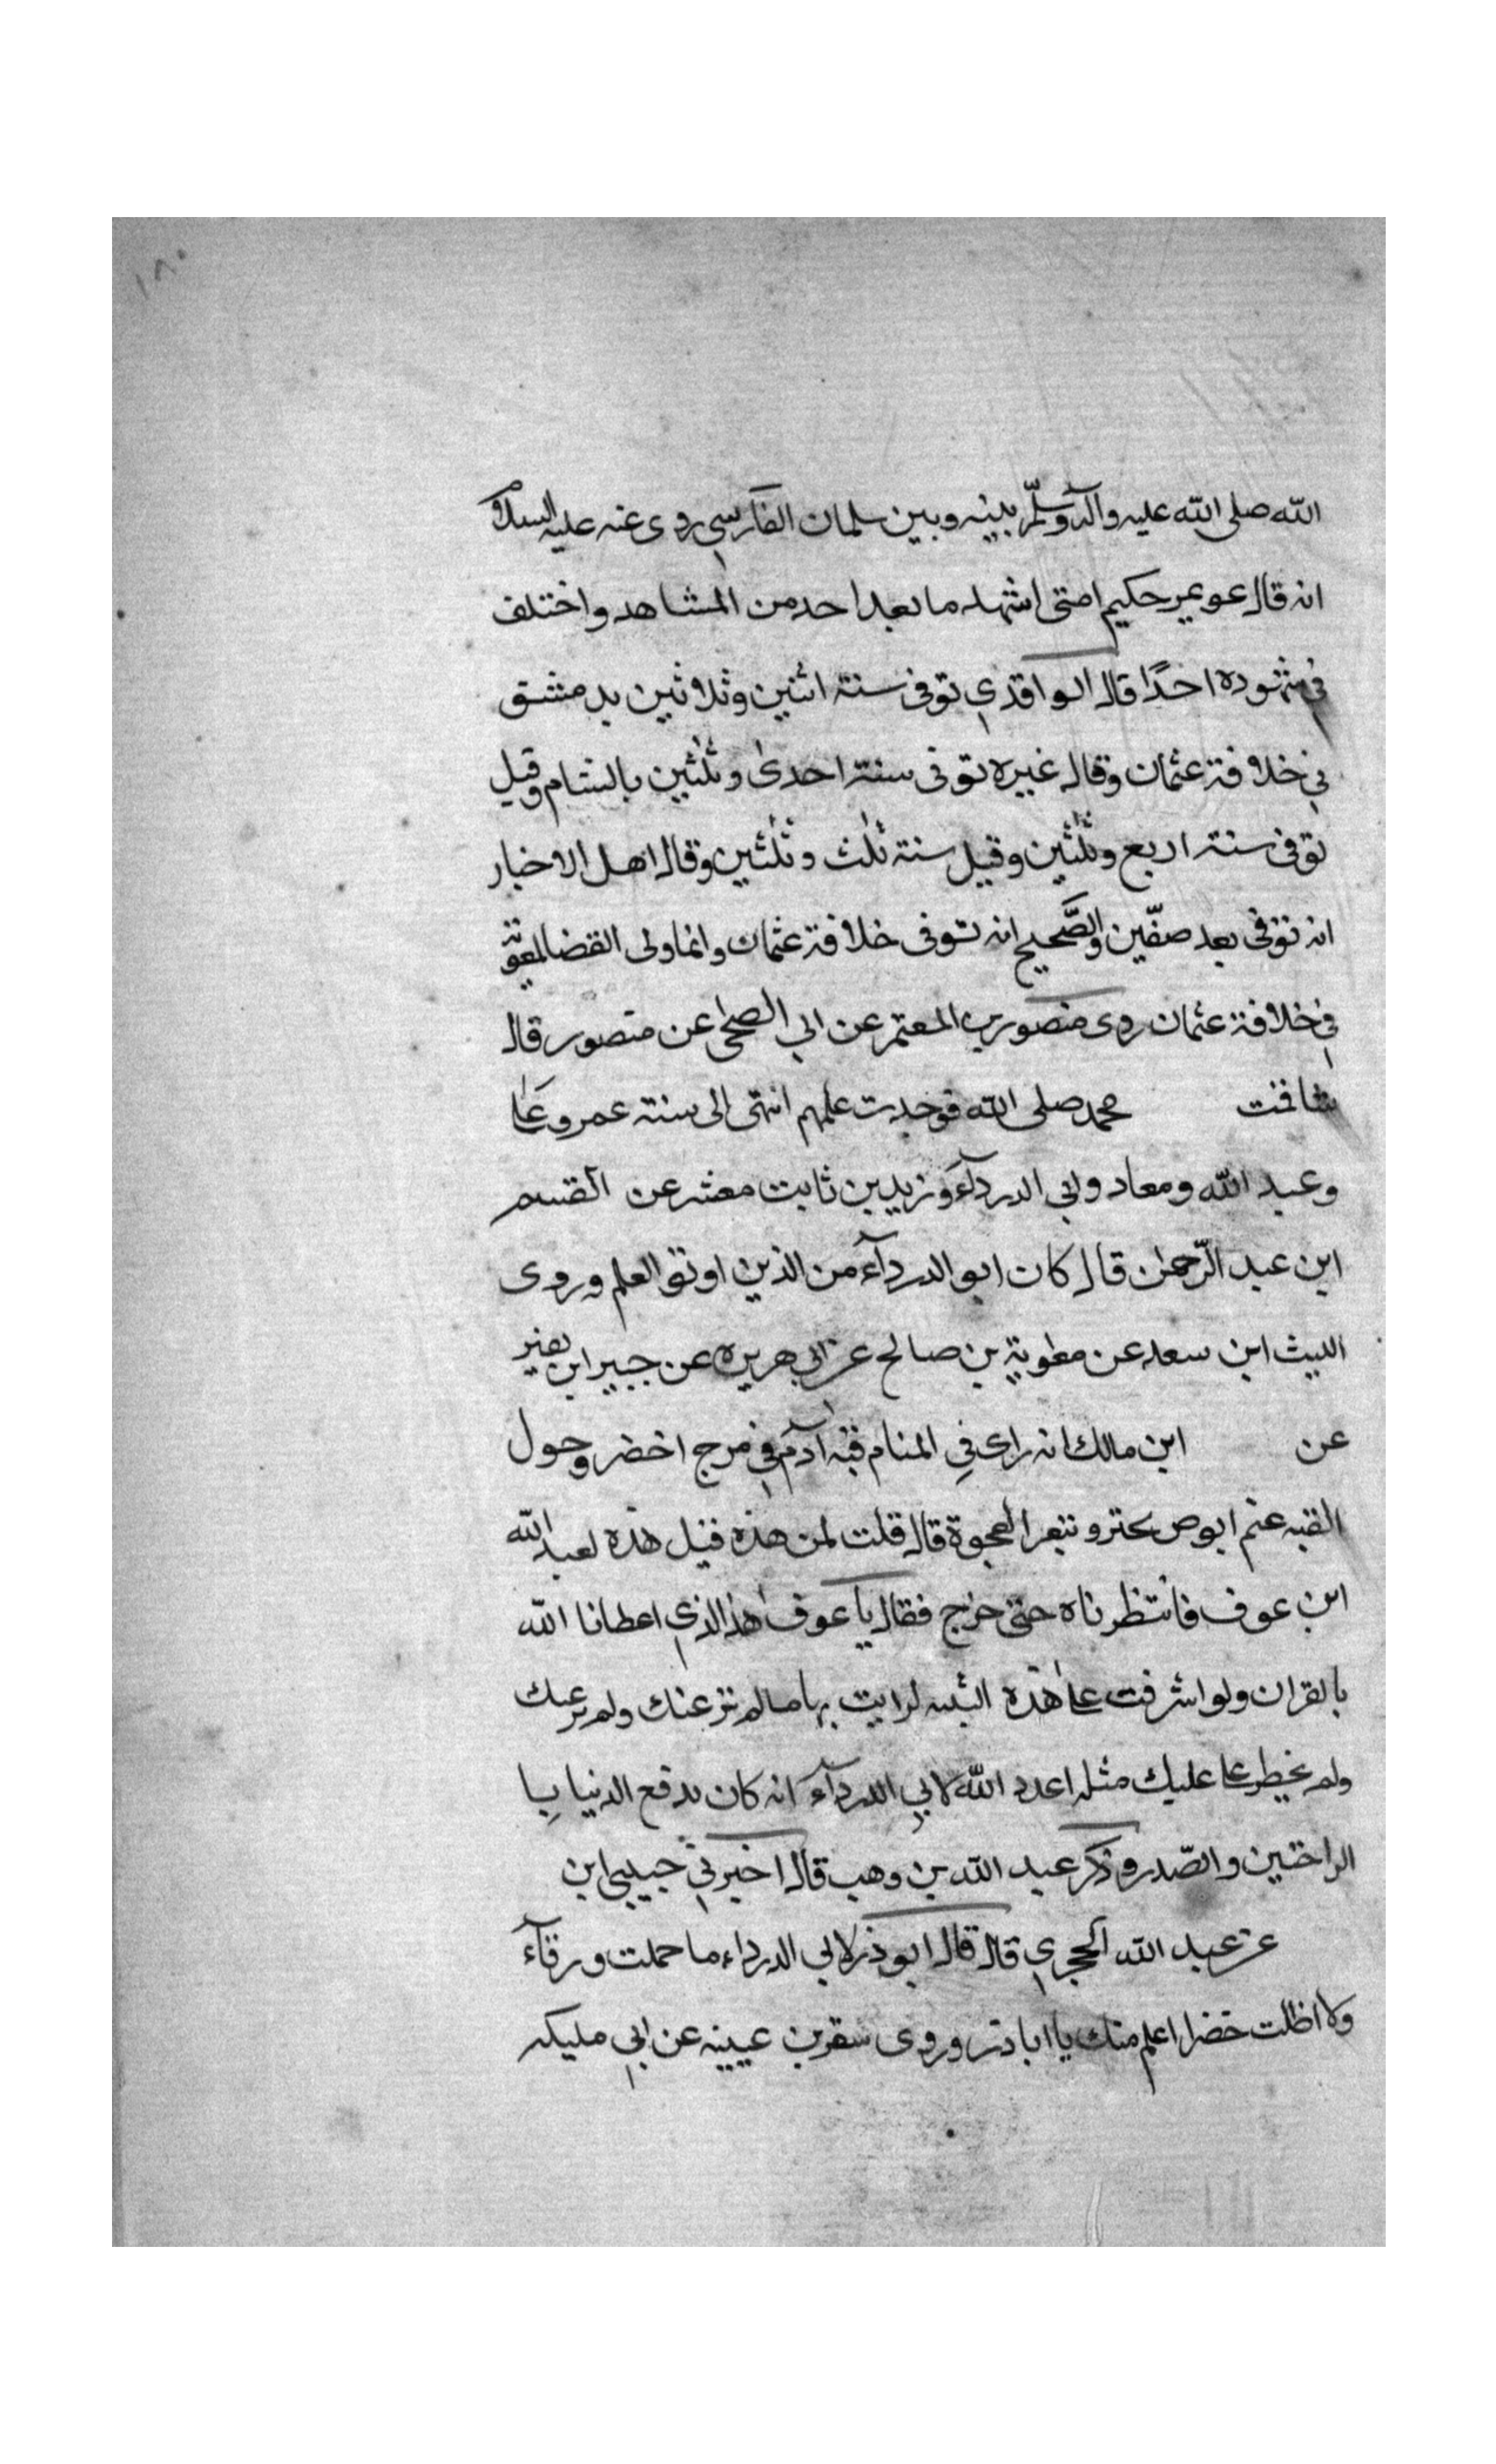 ١٨٠
الله صلى الله عليه وآله وسلم بينه وبين سلمان الفارسي روى عنه عليه السلام
انه قال عويمر حكيم امتى اشهد ما بعد احد من المشاهد واختلف
في شهوده احدًا قال الواقدي توفى سنة اثنين وثلاثين بدمشق
في خلافة عثمان وقال غيره توفى سنة احدى وثلثين بالشام وقيل
توفى سنة اربع وثلثين وقيل سنة ثلث وثلثين وقال اهل الاخبار
انه توفى بعد صفّين والصَّحيح انه توفى خلافة عثمان وانما ولى القضا لمعوية
في خلافة عثمان روى منصور بن المعتمر عن ابي الضحى عن منصور قال
شافت محمد صلى الله فوجدت علمهم انتهى الى سنة عمر وعلى
وعبد الله ومعاد وابي الدرداء وزيد بن ثابت معشر عن القسم
ابن عبد الرّحمن قال كان ابو الدرداء من الذين اوتو العلم وروى
الليث ابن سعد عن معوية بن صالح عن ابي هريره عن جبير ابن نفير
عن ابن مالك انه راى في المنام قبه آدم في مرج اخضر وحول
القبه غنم ابوص تجتر وتبعر العجوة قال قلت لمن هذه فيل هذه لعبد الله
ابن عوف فانتظرناه حتى خرج فقال يا عوف هذا الذي اعطانا الله
بالقران ولو اشرفت على هذه لرايت بها مالم عنك ولم
ولم يخطر على عليك مثله اعدد الله لابي الدرداء انه كان يدفع الدنيا
الراحتين والصّدر وذكر عبد الله بن وهب قال اخبرني ابن
عن عبد الله الحجري قال قال ابو ذر لابي الدرداء ما حملت ورقاء
ولا اظلت خضرا اعلم منك يا ابا در وروى بن عيينه عن ابي مليكه